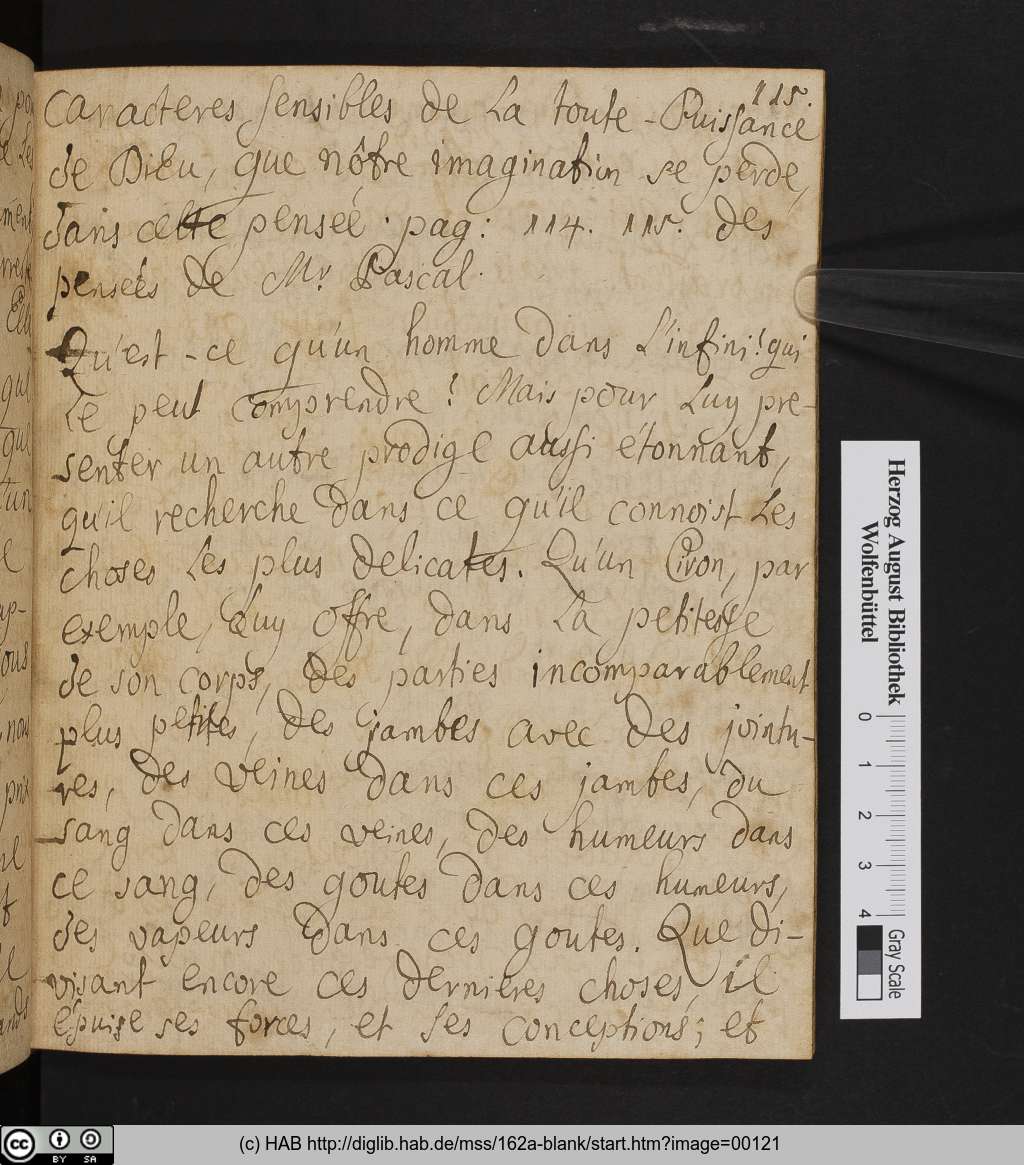 115.
Caracteres sensibles de La toute-Puissance
de Dieu, que nôtre imagination se perde,
dans cette pensée. pag: 114. 115. des
pensées de Mr. Pascal.
Qu'est-ce qu'un homme dans L'infini! qui
Le peut comprendre! Mais pour Luy pre-
senter un autre prodige aussi étonnant,
qu'il recherche dans ce qu'il connoist Les
choses Les plus delicates. Qu'un Ciron, par
exemple, Luy offre, dans La petitesse
de son corps, des parties incomparablement
plus petites, des jambes avec des jointu-
res, des veines dans ces jambes, du
sang dans ces veines, des humeurs dans
ce sang, des goutes dans ces humeurs,
des vapeurs dans ces goutes. Que di-
visant encore ces dernieres choses, il
épuise ses forces, et ses conceptions; et
Herzog August Bibliothek
Wolfenbüttel
0 1 2 3 4
Gray Scale
cc BY SA
(c) HAB http://diglib.hab.de/mss/162a-blank/start.htm?image=00121